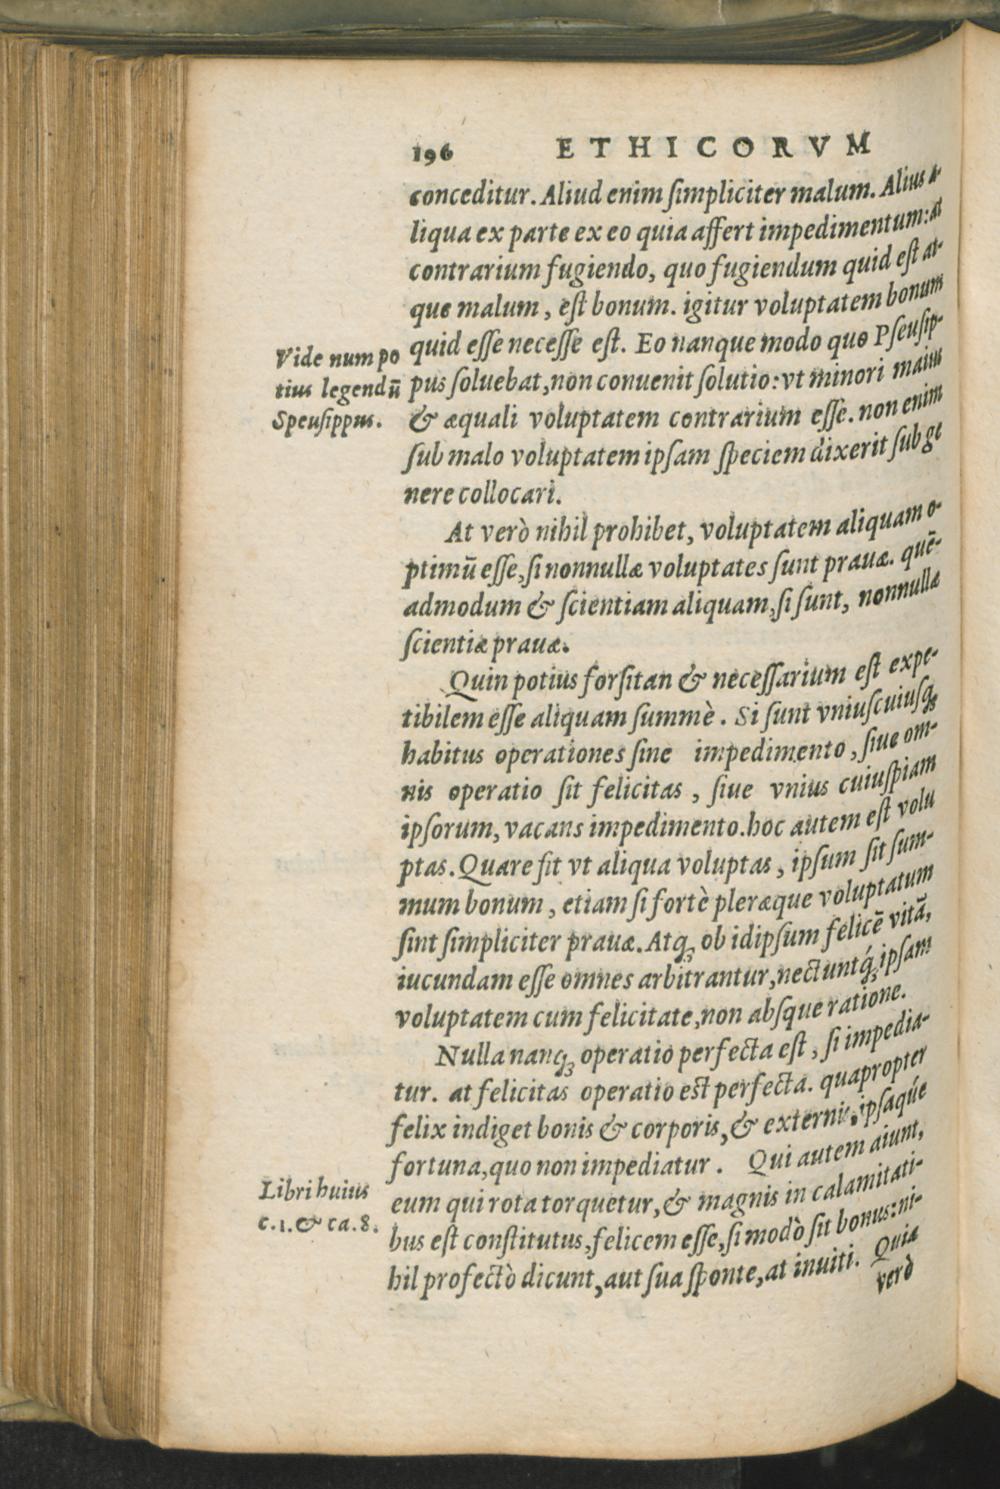 196 ETHICORVM
conceditur. Aliud enim ſimpliciter malum. Alius a-
liqua ex parte ex eo quia affert impedimentum: at
contrarium fugiendo, quo fugiendum quid eſt at-
que malum, eſt bonum. igitur voluptatem bonum
quid eſſe neceſſe eſt. Eo nanque modo quo Pſeuſip-
pus ſoluebat, non conuenit ſolutio: vt minori maius
& æquali voluptatem contrarium eſſe. non enim
ſub malo voluptatem ipſam ſpeciem dixerit ſub ge
nere collocari.
Vide num po
tius legendū
Speuſippus.
At verò nihil prohibet, voluptatem aliquam o-
ptimū eſſe, ſi nonnullæ voluptates ſunt prauæ. quē-
admodum & ſcientiam aliquam, ſi ſunt, nonnullæ
ſcientiæ prauæ.
Quin potius forſitan & neceſſarium eſt expe-
tibilem eſſe aliquam ſummè. Si ſunt vniuſcuiuſq;
habitus operationes ſine impedimento, ſiue om-
nis operatio ſit felicitas, ſiue vnius cuiuſpiam
ipſorum, vacans impedimento. hoc autem eſt volu
ptas. Quare fit vt aliqua voluptas, ipſum ſit ſum-
mum bonum, etiam ſi fortè pleræque voluptatum
ſint ſimpliciter prauæ. Atq; ob id ipſum felicē vitā,
iucundam eſſe omnes arbitrantur, nectuntq́; ipſam
voluptatem cum felicitate, non abſque ratione.
Nulla nanq; operatio perfecta eſt, ſi impedia-
tur. at felicitas operatio eſt perfecta. quapropter
felix indiget bonis & corporis, & externis, ipſaq́ue
fortuna, quo non impediatur. Qui autem aiunt,
eum qui rota torquetur, & magnis in calamitati-
bus eſt conſtitutus, felicem eſſe, ſi modò ſit bonus: ni-
hil profectò dicunt, aut ſua ſponte, at inuiti. Quia
verò
Libri huius
c.1. & ca.8.